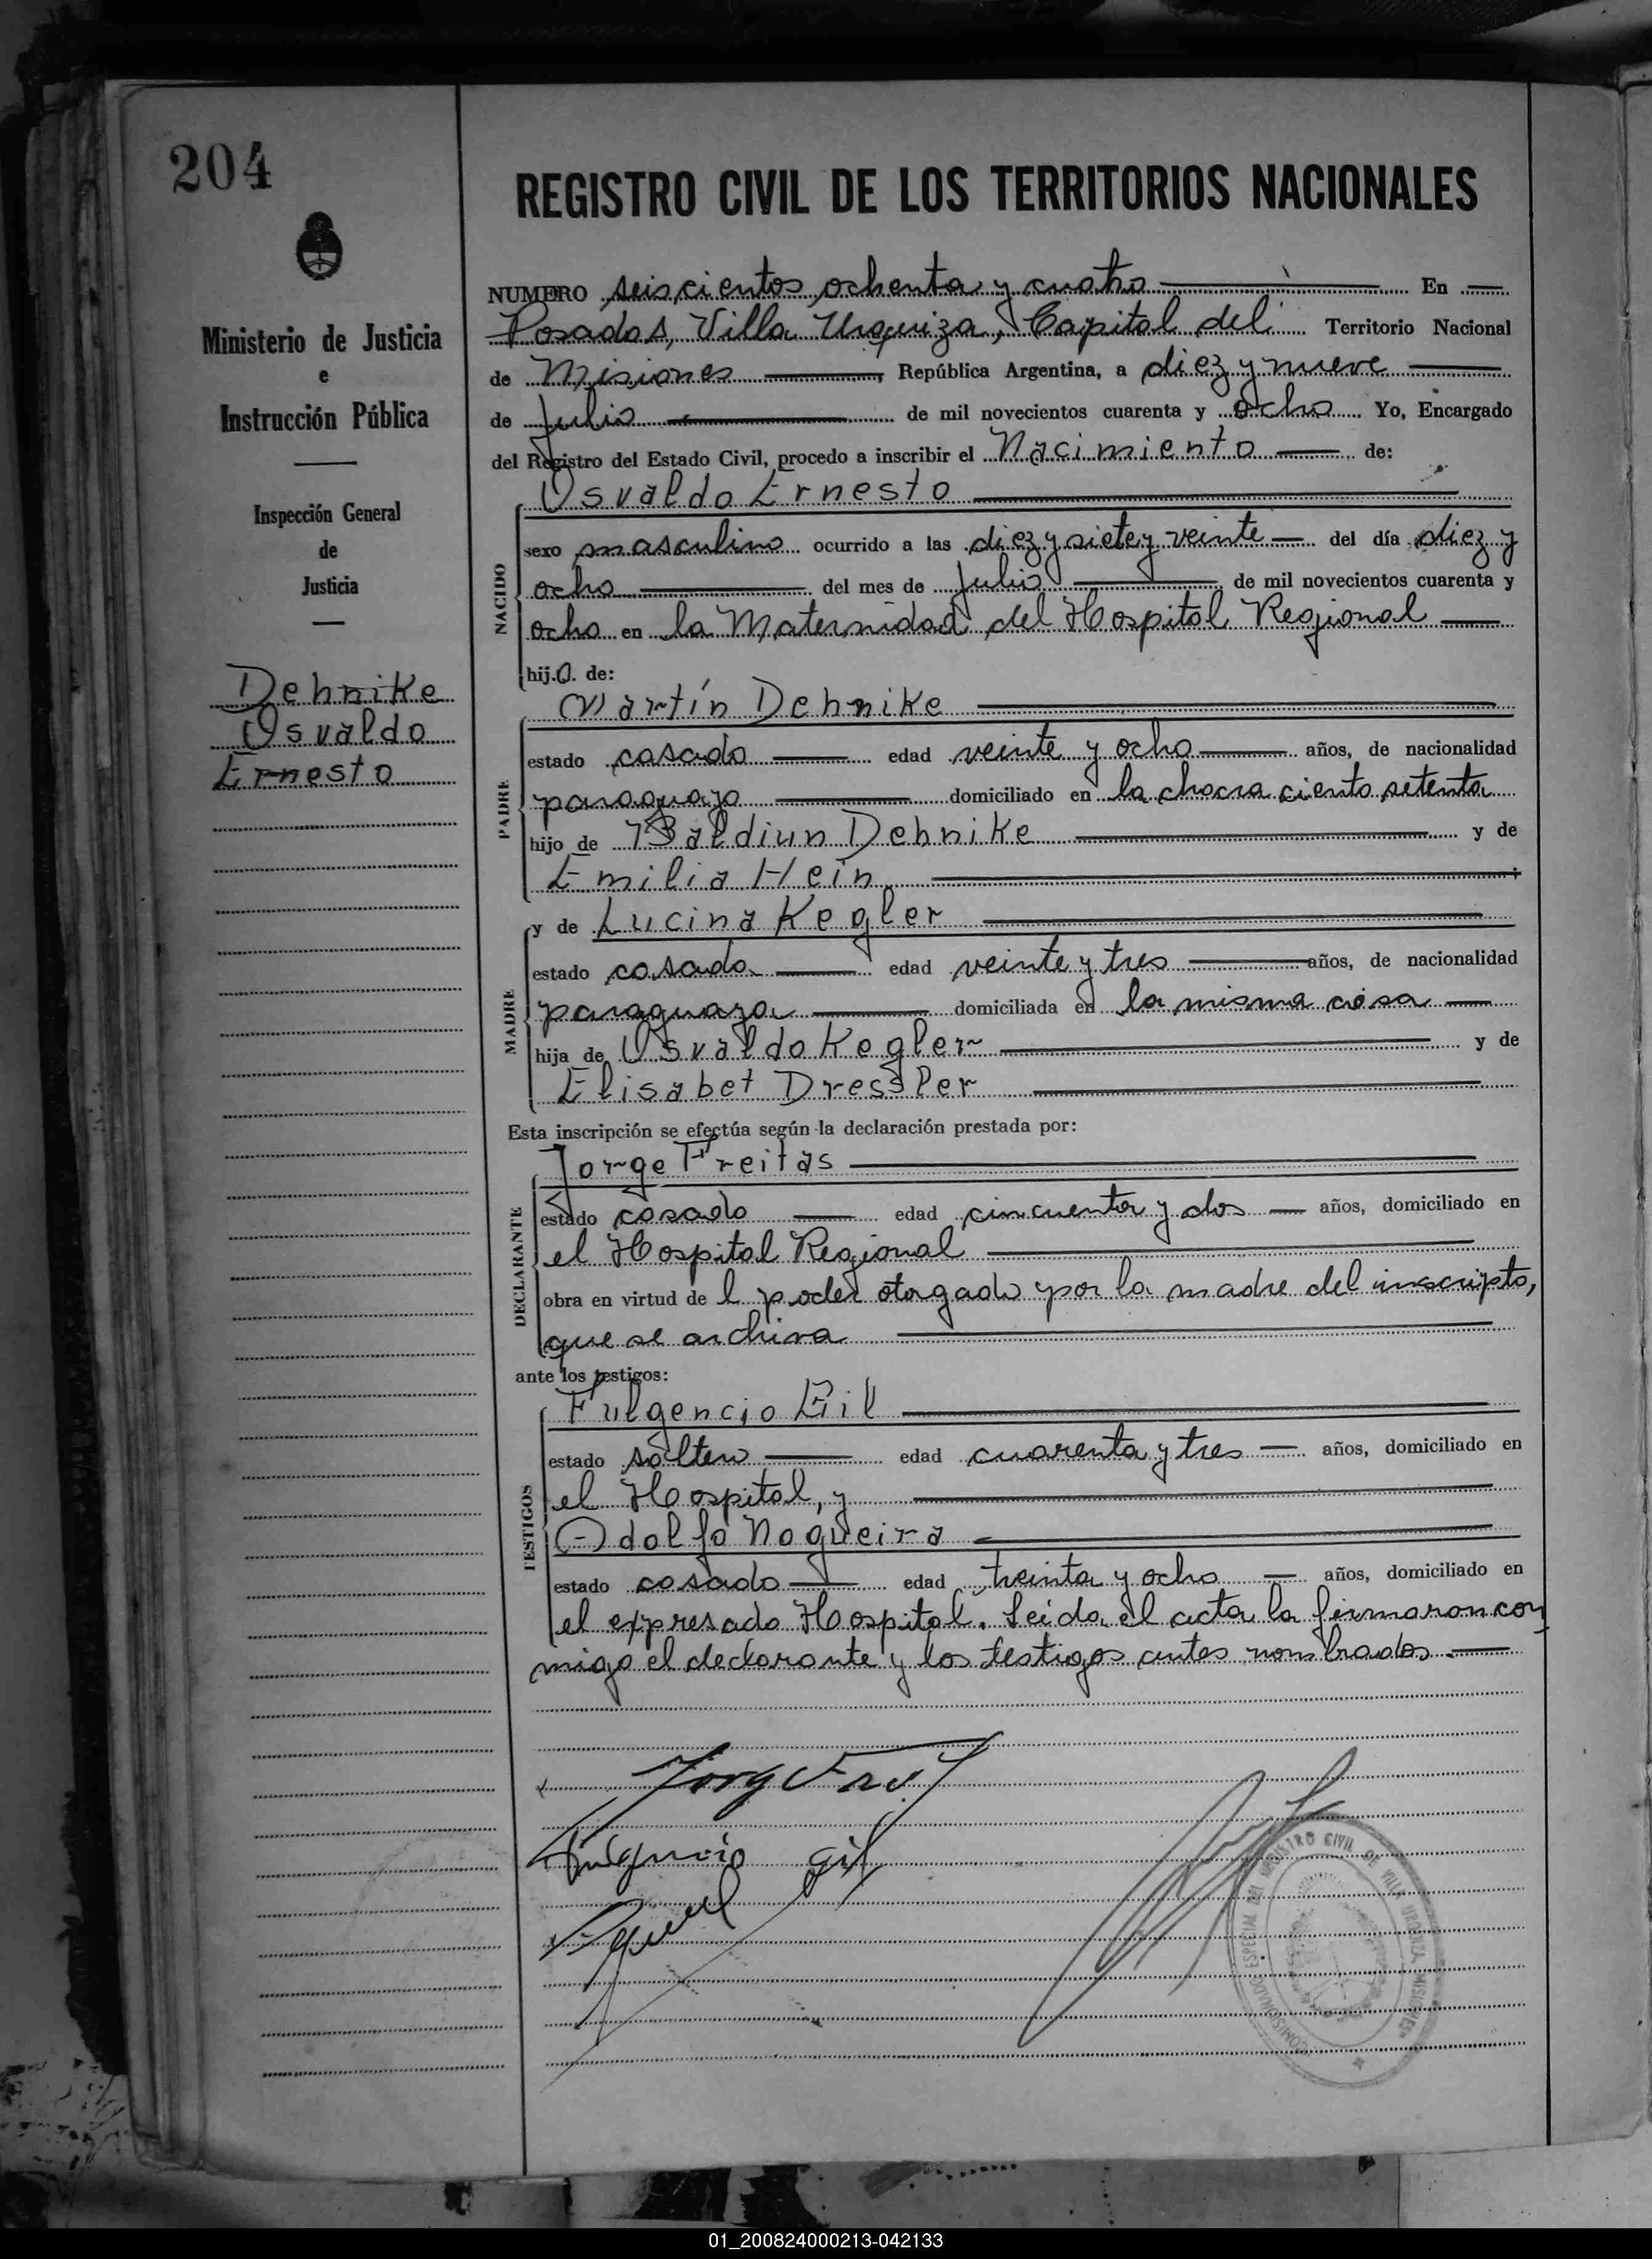 204
REGISTRO CIVIL DE LOS TERRITORIOS NACIONALES
Ministerio de Justicia
e
Instrucción Pública
Inspección General
de
Justicia
Dehnike
Osvaldo
Ernesto
NUMERO seiscientos ochenta y cuatro En
Posadas, Villa Urquiza, Capital del Territorio Nacional
de Misiones, República Argentina, a diez y nueve
de Julio de mil novecientos cuarenta y ocho Yo, Encargado
del Registro del Estado Civil, procedo a inscribir el Nacimiento de:
Osvaldo Ernesto
NACIDO
sexo masculino ocurrido a las diez y siete y veinte del día diez y
ocho del mes de Julio de mil novecientos cuarenta y
ocho en la Maternidad del Hospital Regional
hijo de:
Martín Dehnike
PADRE
estado casado edad veinte y ocho años, de nacionalidad
paraguayo domiciliado en la chacra ciento setenta
hijo de Baldiun Dehnike y de
Emilia Hein
y de Lucina Kegler
MADRE
estado casada edad veinte y tres años, de nacionalidad
paraguaya domiciliada en la misma casa
hija de Osvaldo Kegler y de
Elisabet Dressler
Esta inscripción se efectúa según la declaración prestada por:
Jorge Freitas
DECLARANTE
estado casado edad cincuenta y dos años, domiciliado en
el Hospital Regional
obra en virtud de l poder otorgado por la madre del inscripto,
que se archiva
ante los testigos:
Fulgencio Gil
TESTIGOS
estado soltero edad cuarenta y tres años, domiciliado en
el Hospital, y
Adolfo Nogueira
estado casado edad treinta y ocho años, domiciliado en
el expresado Hospital. Leída el acta la firmaron con
migo el declarante y los testigos antes nombrados.
Fulgencio Gil
COMISIONADO ESPECIAL DEL REGISTRO CIVIL DE VILLA URQUIZA, MISIONES
01_200824000213-042133